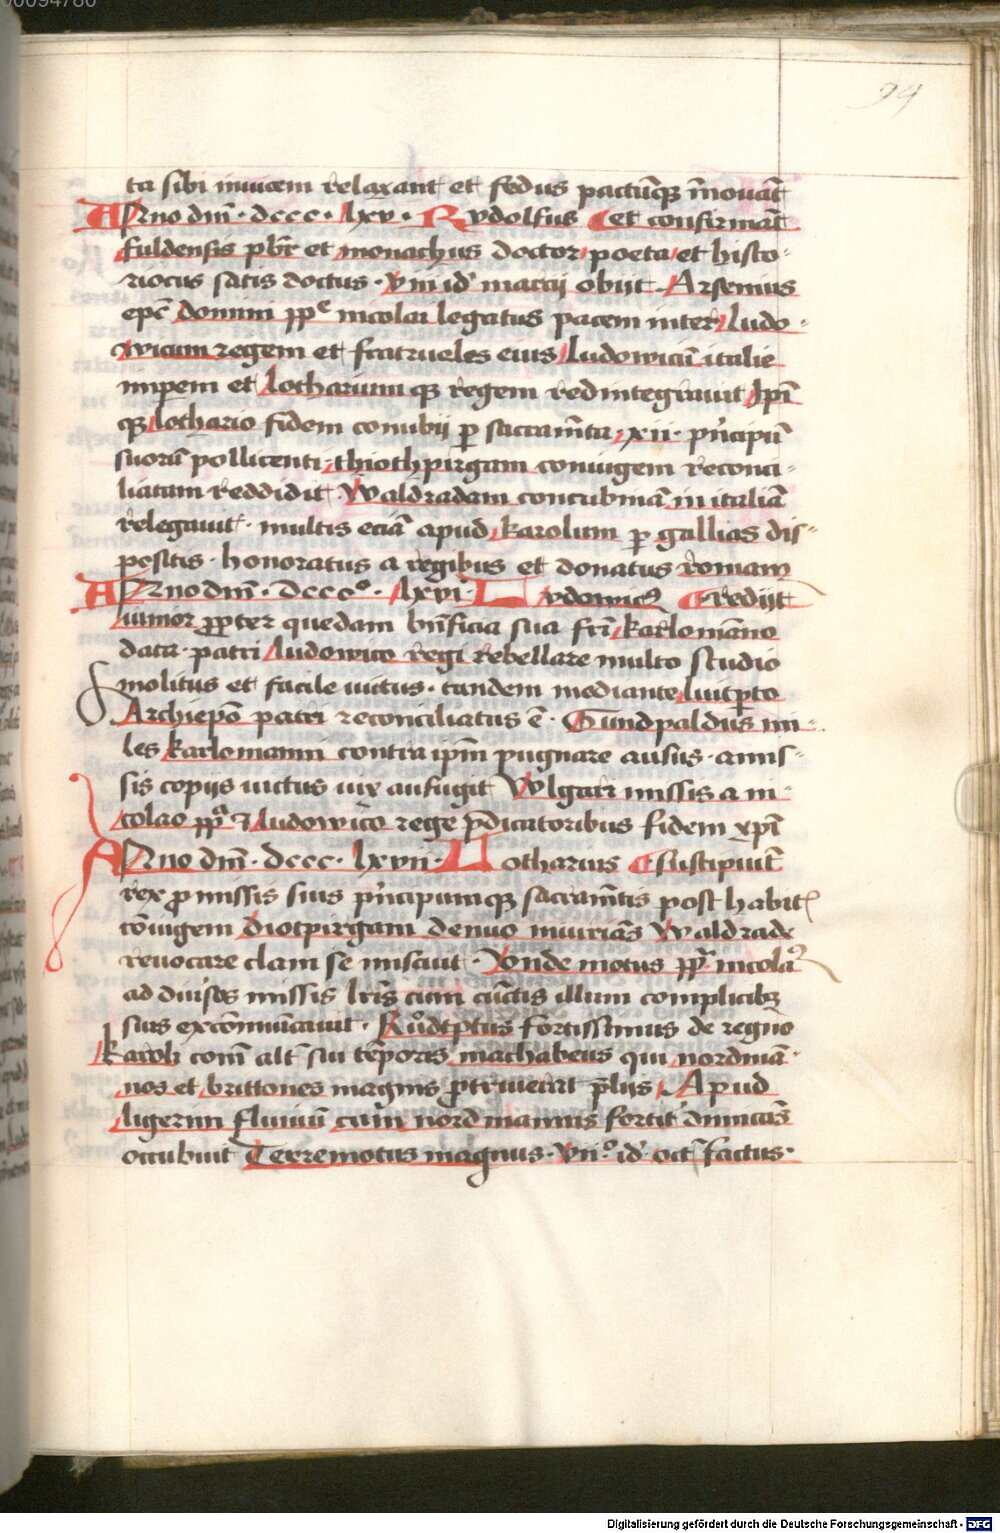 00094780
94
ta sibi inuicem relaxant et fedus pactūq; īnouāt
Anno dnī · dccc · lxv · Rvdolfus ¶et confirmāt
fuldensis pbr̄ et monachus doctor poeta et histo-
riocus satis doctus · Viii id' marcij obiit Arsenius
epc̄ domini pp̄e nicolai legatus pacem inter Ludo-
wicum regem et fratrueles eius Ludowicū italie
imperem et Lotharium q; regem redintegrauit Ipī
q; Lothario fidem conubij p sacramēta xii · pn̄cipū
suorū pollicenti thiothpirgam coniugem reconci-
liatam reddidit Waldradam concubinā in italiā
relegauit · multis eciā apud karolum p gallias dis-
positis · honoratus a regibus et donatus romam
Anno dnī · Dccc° · lxvi · Lvdowic9 ¶Redijt
iunior ppter quedam bn̄ficia sua frī karlomāno
data · patri Ludowico regi rebellare multo studio
molitus et facile uictus · tandem mediante Luitpto
Archiepō patri reconciliatus ē · Gundpaldus mi-
les karlomanni contra ipm̄ pugnare ausus · amis-
sis copijs uictus uix aufugit Vlgari missis a ni-
colao pp̄a & Ludowico rege pdicatoribus fidem xpī
Anno dnī · dccc · lxvii · Lotharius ¶Suscipiūt
rex pmissis suis pn̄cipumq; sacramētis post habit
cōiugem Diotpirgam denuo iniuriās Waldrade
reuocare clam se nisciuit · Vnde motus pp̄ nicola9
ad diuisos missis lrīs cum cūctis illum complicibz
suis excōmūicauit · Ruodtptus fortissimus de regno
karoli com̄ alt̄ sui tēporis machabeus qui nordmā-
nos et brittones magnis ptriuerat p̄lijs Apud
ligerim fluuiū cum nordmannis fortit' dimicās
occubuit Terremotus magnus · Vii° id' oct̄ factus ·
Digitalisierung gefördert durch die Deutsche Forschungsgemeinschaft - DFG